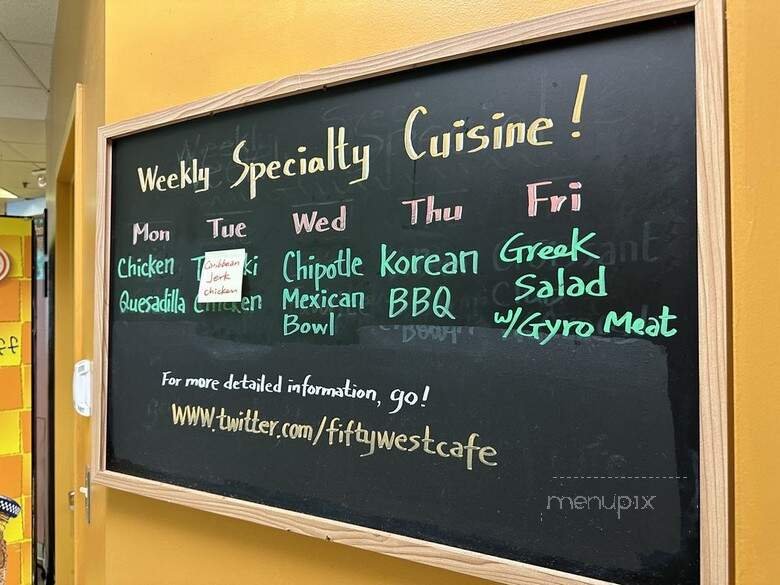 Weekly Specialty Cuisine!
Mon Tue Wed Thu Fri
Chicken
Quesadilla
Caribbean
Jerk
chicken
Chicken
Chipotle
Mexican
Bowl
Korean
BBQ
Greek
Salad
w/Gyro Meat
For more detailed information, go!
www.twitter.com/fiftywestcafe
menupix